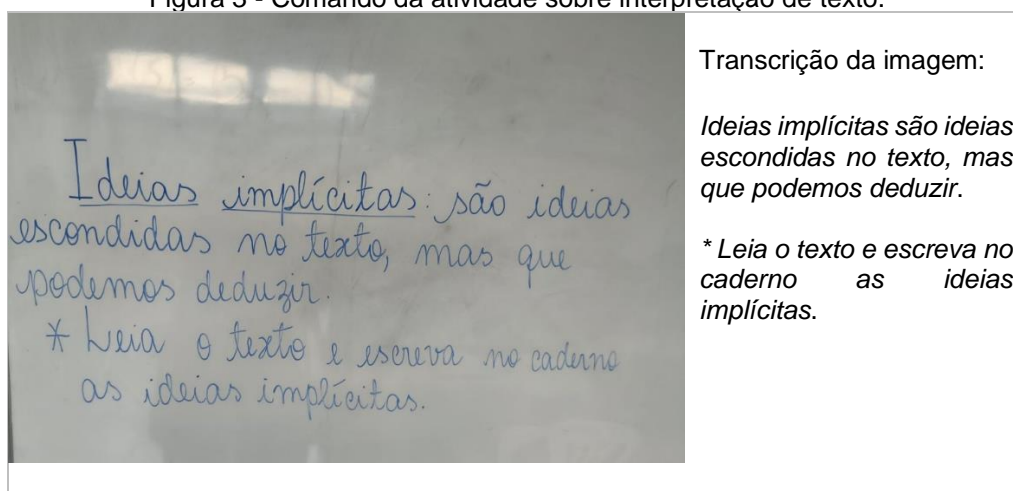 Figura 3 - Comando da atividade sobre interpretação de texto.
Ideias implícitas: são ideias
escondidas no texto, mas que
podemos deduzir.
* Leia o texto e escreva no caderno
as ideias implícitas.
Transcrição da imagem:
Ideias implícitas são ideias
escondidas no texto, mas
que podemos deduzir.
* Leia o texto e escreva no
caderno as ideias
implícitas.